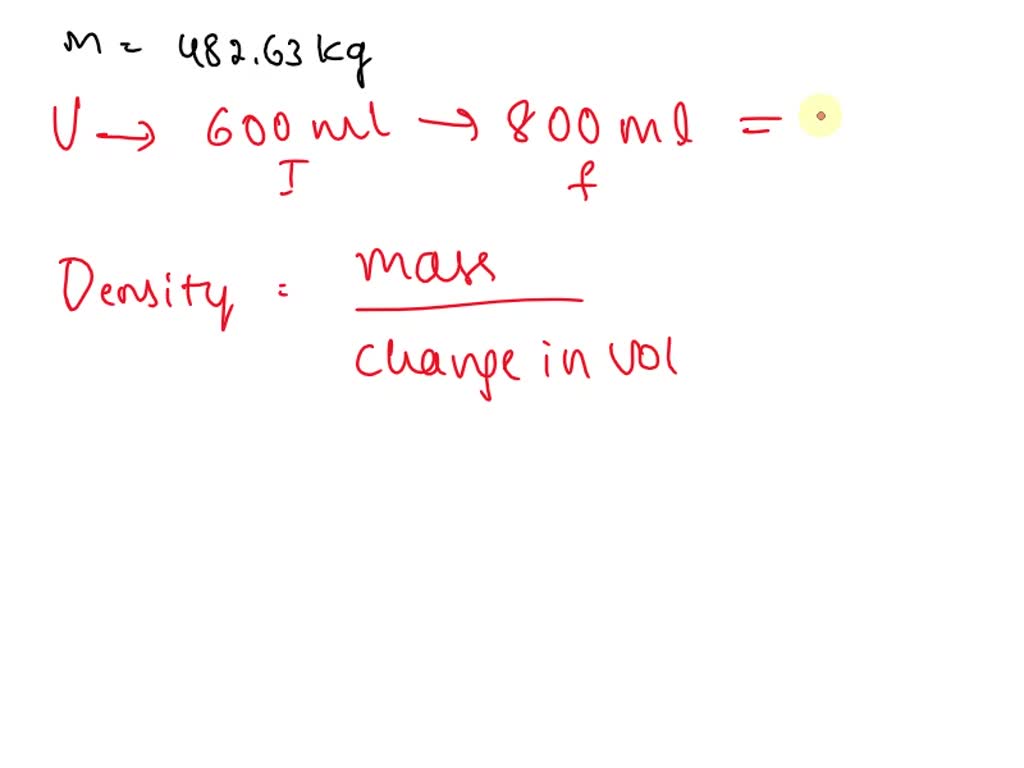 M = 482.63 kg
V → 600 ml → 800 ml =
I f
Density = mass
change in vol